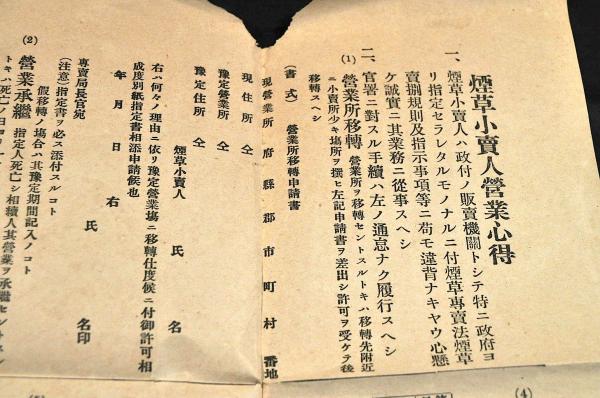 煙草小賣人營業心得
一、煙草小賣人ハ政付ノ販賣機關トシテ特ニ政府ヨ
リ指定セラレタルモノナルニ付煙草專賣法煙草
賣捌規則及指示事項等ニ苟モ違背ナキヤウ心懸
ケ誠實ニ其業務ニ從事スヘシ
二、官署ニ對スル手續ハ左ノ通怠ナク履行スヘシ
(1) 營業所移轉 營業所ヲ移轉セントスルトキハ移轉先附近
ニ小賣所少キ塲所ヲ撰ヒ左記申請書ヲ差出シ許可ヲ受ケテ後
移轉スヘシ
(書式) 營業所移轉申請書
現營業所 府縣郡市町村 番地
現住所 仝
豫定營業所 仝
豫定住所 仝
煙草小賣人 氏 名
右ハ何々ノ理由ニ依リ豫定營業塲ニ移轉仕度候ニ付御許可相
成度別紙指定書相添申請候也
年 月 日 右 氏 名印
專賣局長官宛
(注意) 指定書ヲ必ス添付スルコト
假移轉ノ塲合ハ其豫定期間記入ノコト
(2) 營業承繼 指定人死亡シ相續人其營業ヲ承繼セントスル
トキハ死亡ノ日ヨリ
(4)